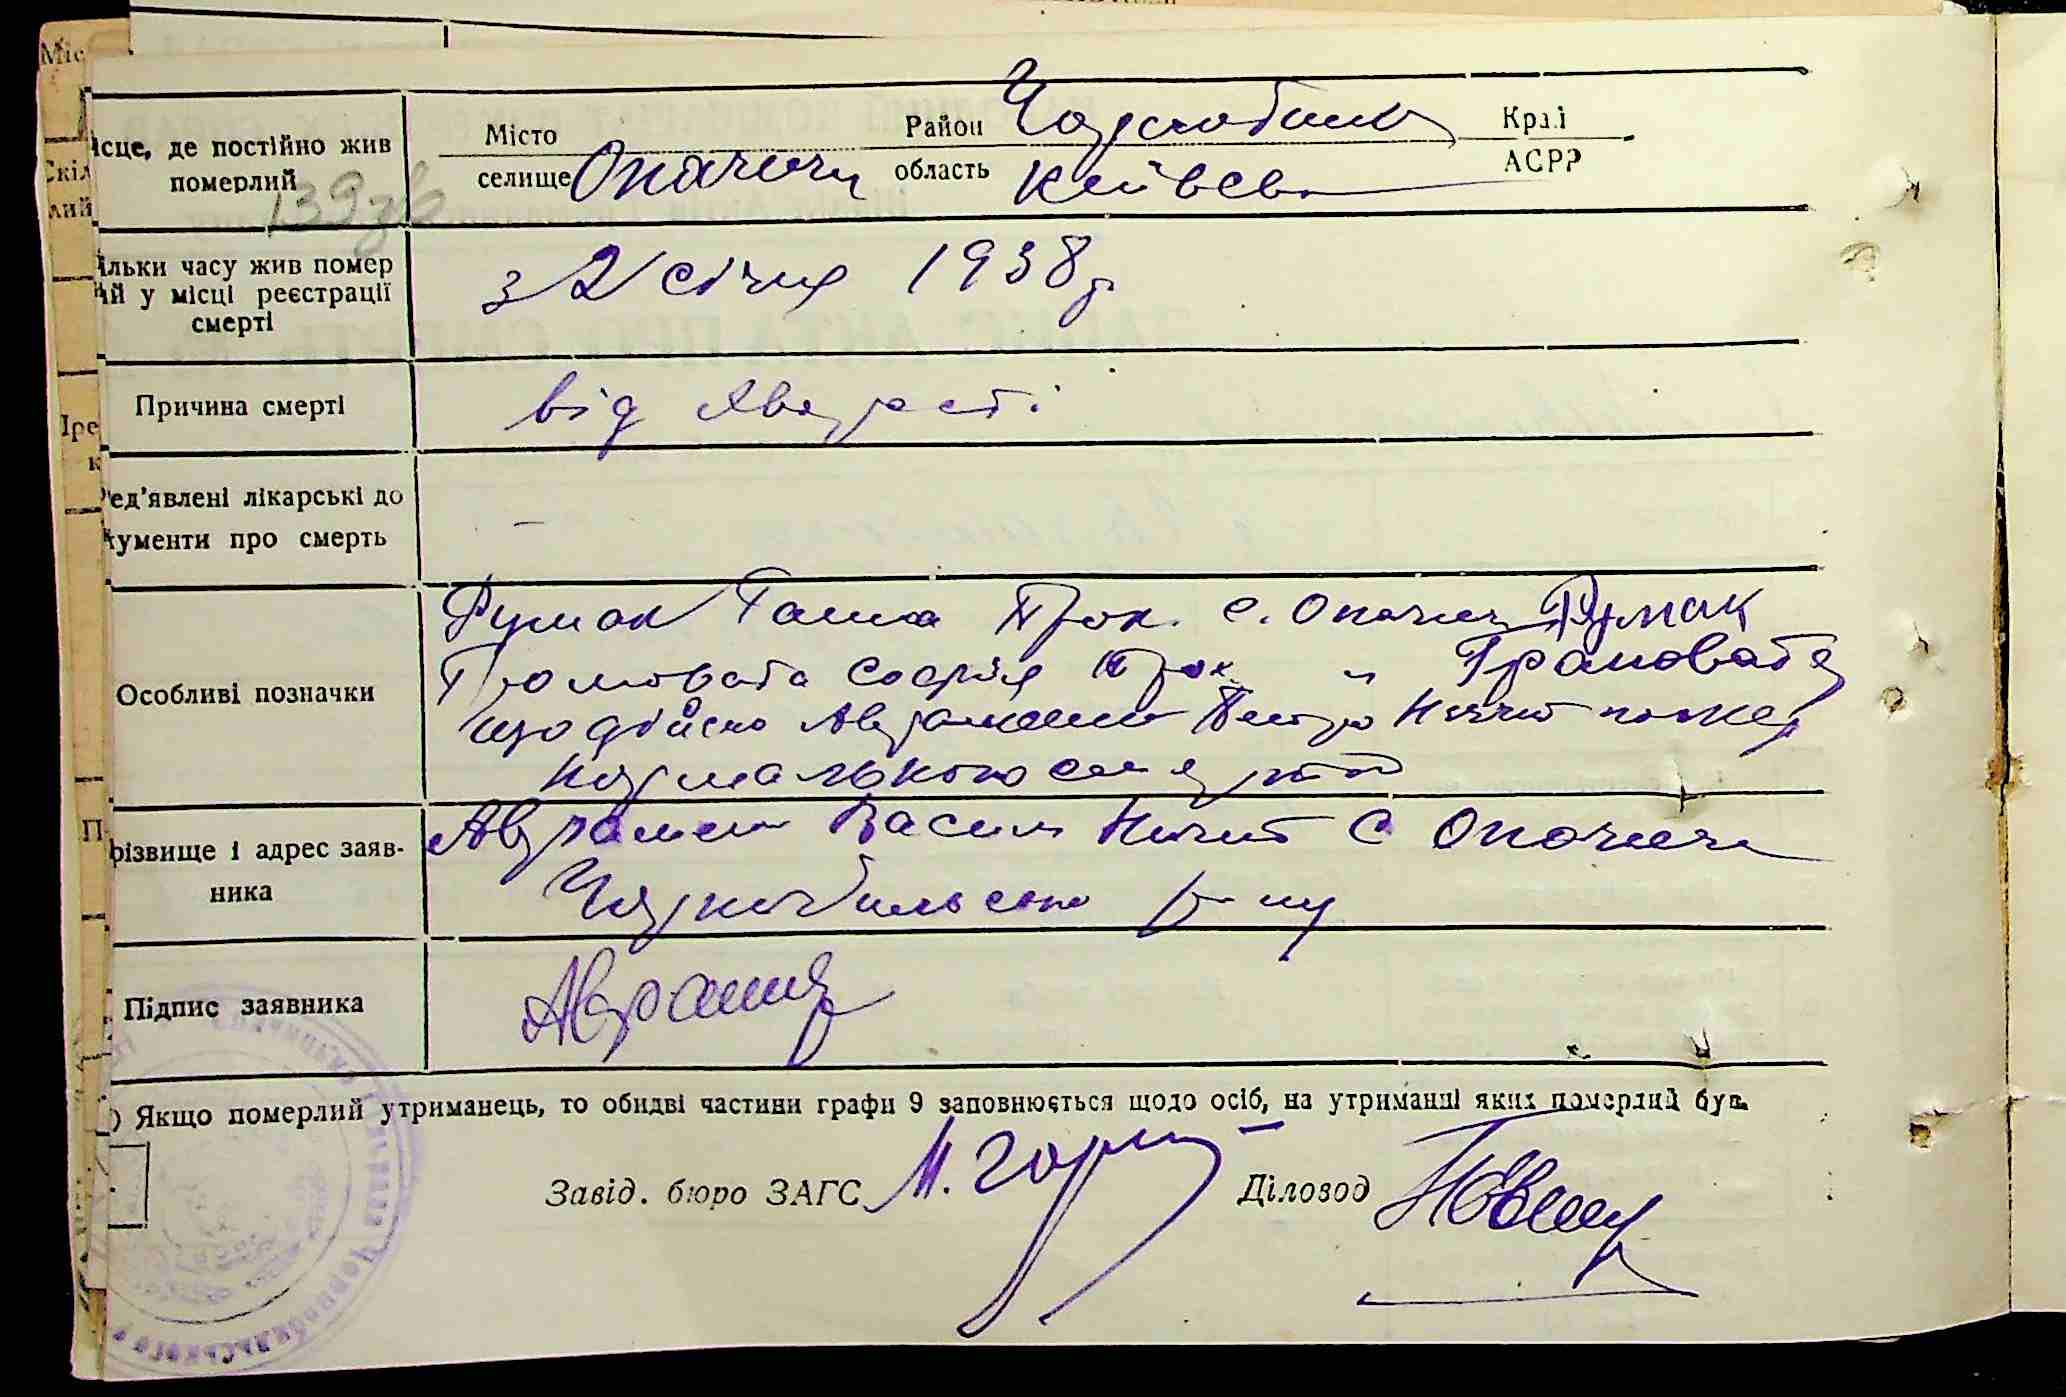 ісце, де постійно жив
померлий
Місто
селище Опачичі
Район Чорнобильс
область Київськ
Краї
АСРР
139зв
ільки часу жив помер
ий у місці реєстрації
смерті
з 2 січня 1938 р.
Причина смерті
від
ред'явлені лікарські до
кументи про смерть
–
Особливі позначки
Румак Ганна Прок. с. Опачичі Румак
Грамовата Софія Прок. " Грамовата
що дійсно Авраменко Петро Ничип помер
нормальною смертю
різвище і адрес заяв-
ника
Авраменко Василь Ничип с Опачичи
Чорнобильсько р-ну
Підпис заявника
) Якщо померлий утриманець, то обидві частини графи 9 заповнюється щодо осіб, на утриманні яких померлий був.
Завід. бюро ЗАГС
Діловод
Чорнобильського